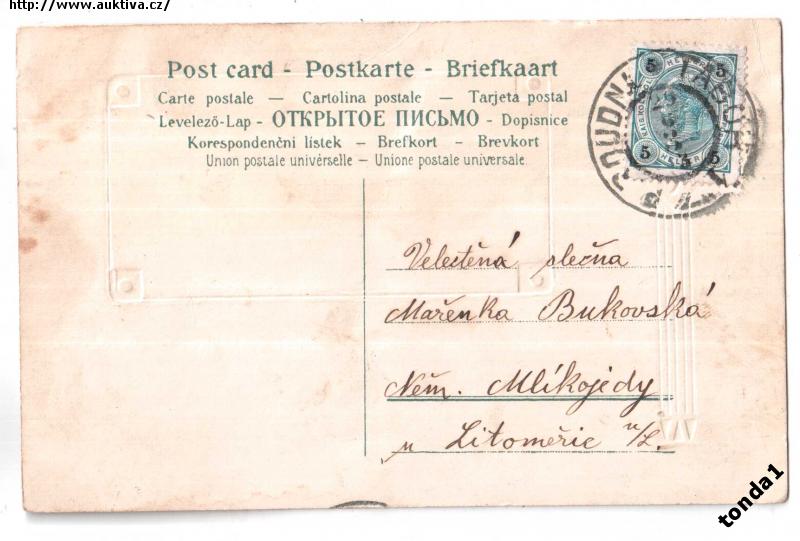 http://www.auktiva.cz/
Post card - Postkarte - Briefkaart
Carte postale — Cartolina postale — Tarjeta postal
Levelező-Lap - ОТКРЫТОЕ ПИСЬМО - Dopisnice
Korespondenční lístek - Brefkort - Brevkort
Union postale universelle - Unione postale universale.
5 5
5 5
TÁBOR
Velectěná slečna
Mařenka Bukovská
Něm. Mlíkojedy
u Litoměřic n/L.
tonda1